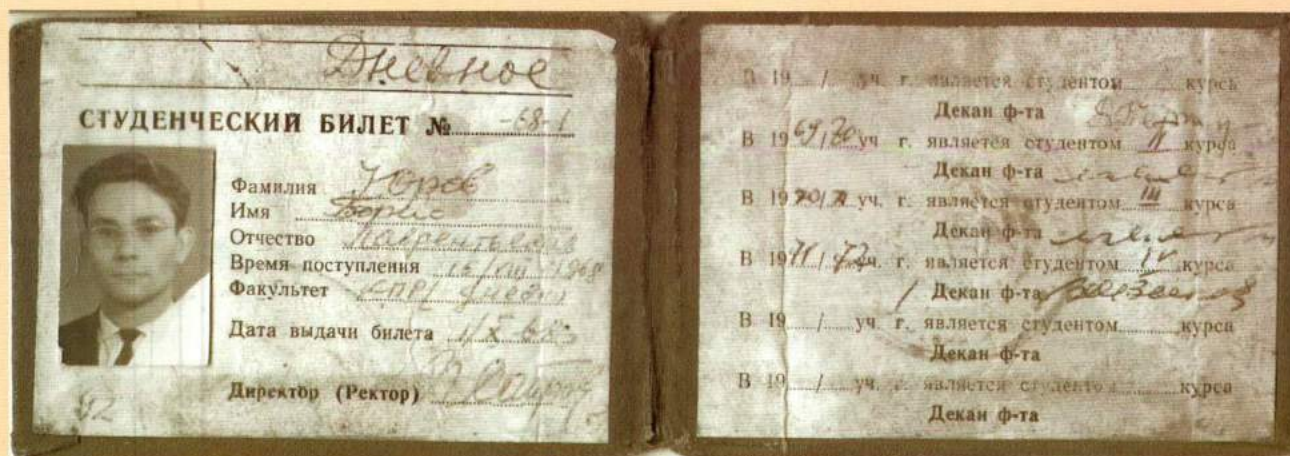 Дневное
СТУДЕНЧЕСКИЙ БИЛЕТ № -68-1
Фамилия Юрьев
Имя Борис
Отчество Лаврентьевич
Время поступления 15/VIII 1968
Факультет
Дата выдачи билета 1/X 68
Директор (Ректор)
92
В 19 / уч. г. является студентом курса
Декан ф-та
В 1969/70 уч г. является студентом II курса
Декан ф-та
В 1970/71 уч. г. является студентом III курса
Декан ф-та
В 1971/72 уч. г. является студентом IV курса
Декан ф-та
В 19 / уч. г. является студентом курса
Декан ф-та
В 19 / уч. г. является студентом курса
Декан ф-та